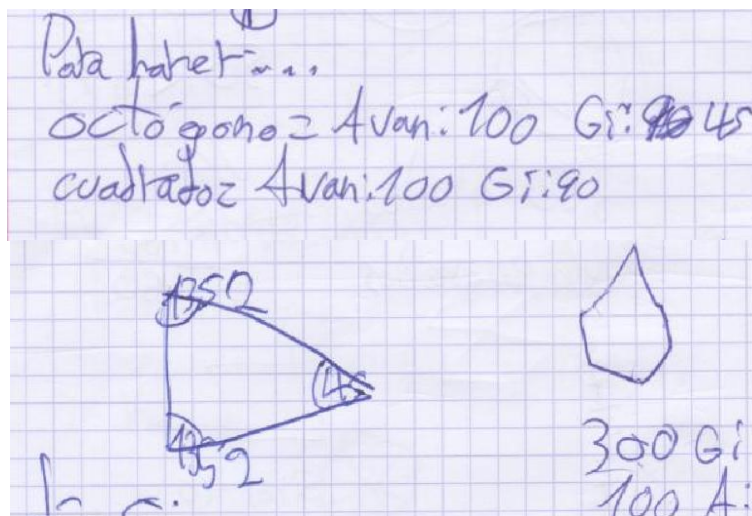 Para hacer....
octógono= Avan:100 Gi: 45
cuadrado= Avan:100 Gi:90
135º
45
135º
300 Gi
100 A: